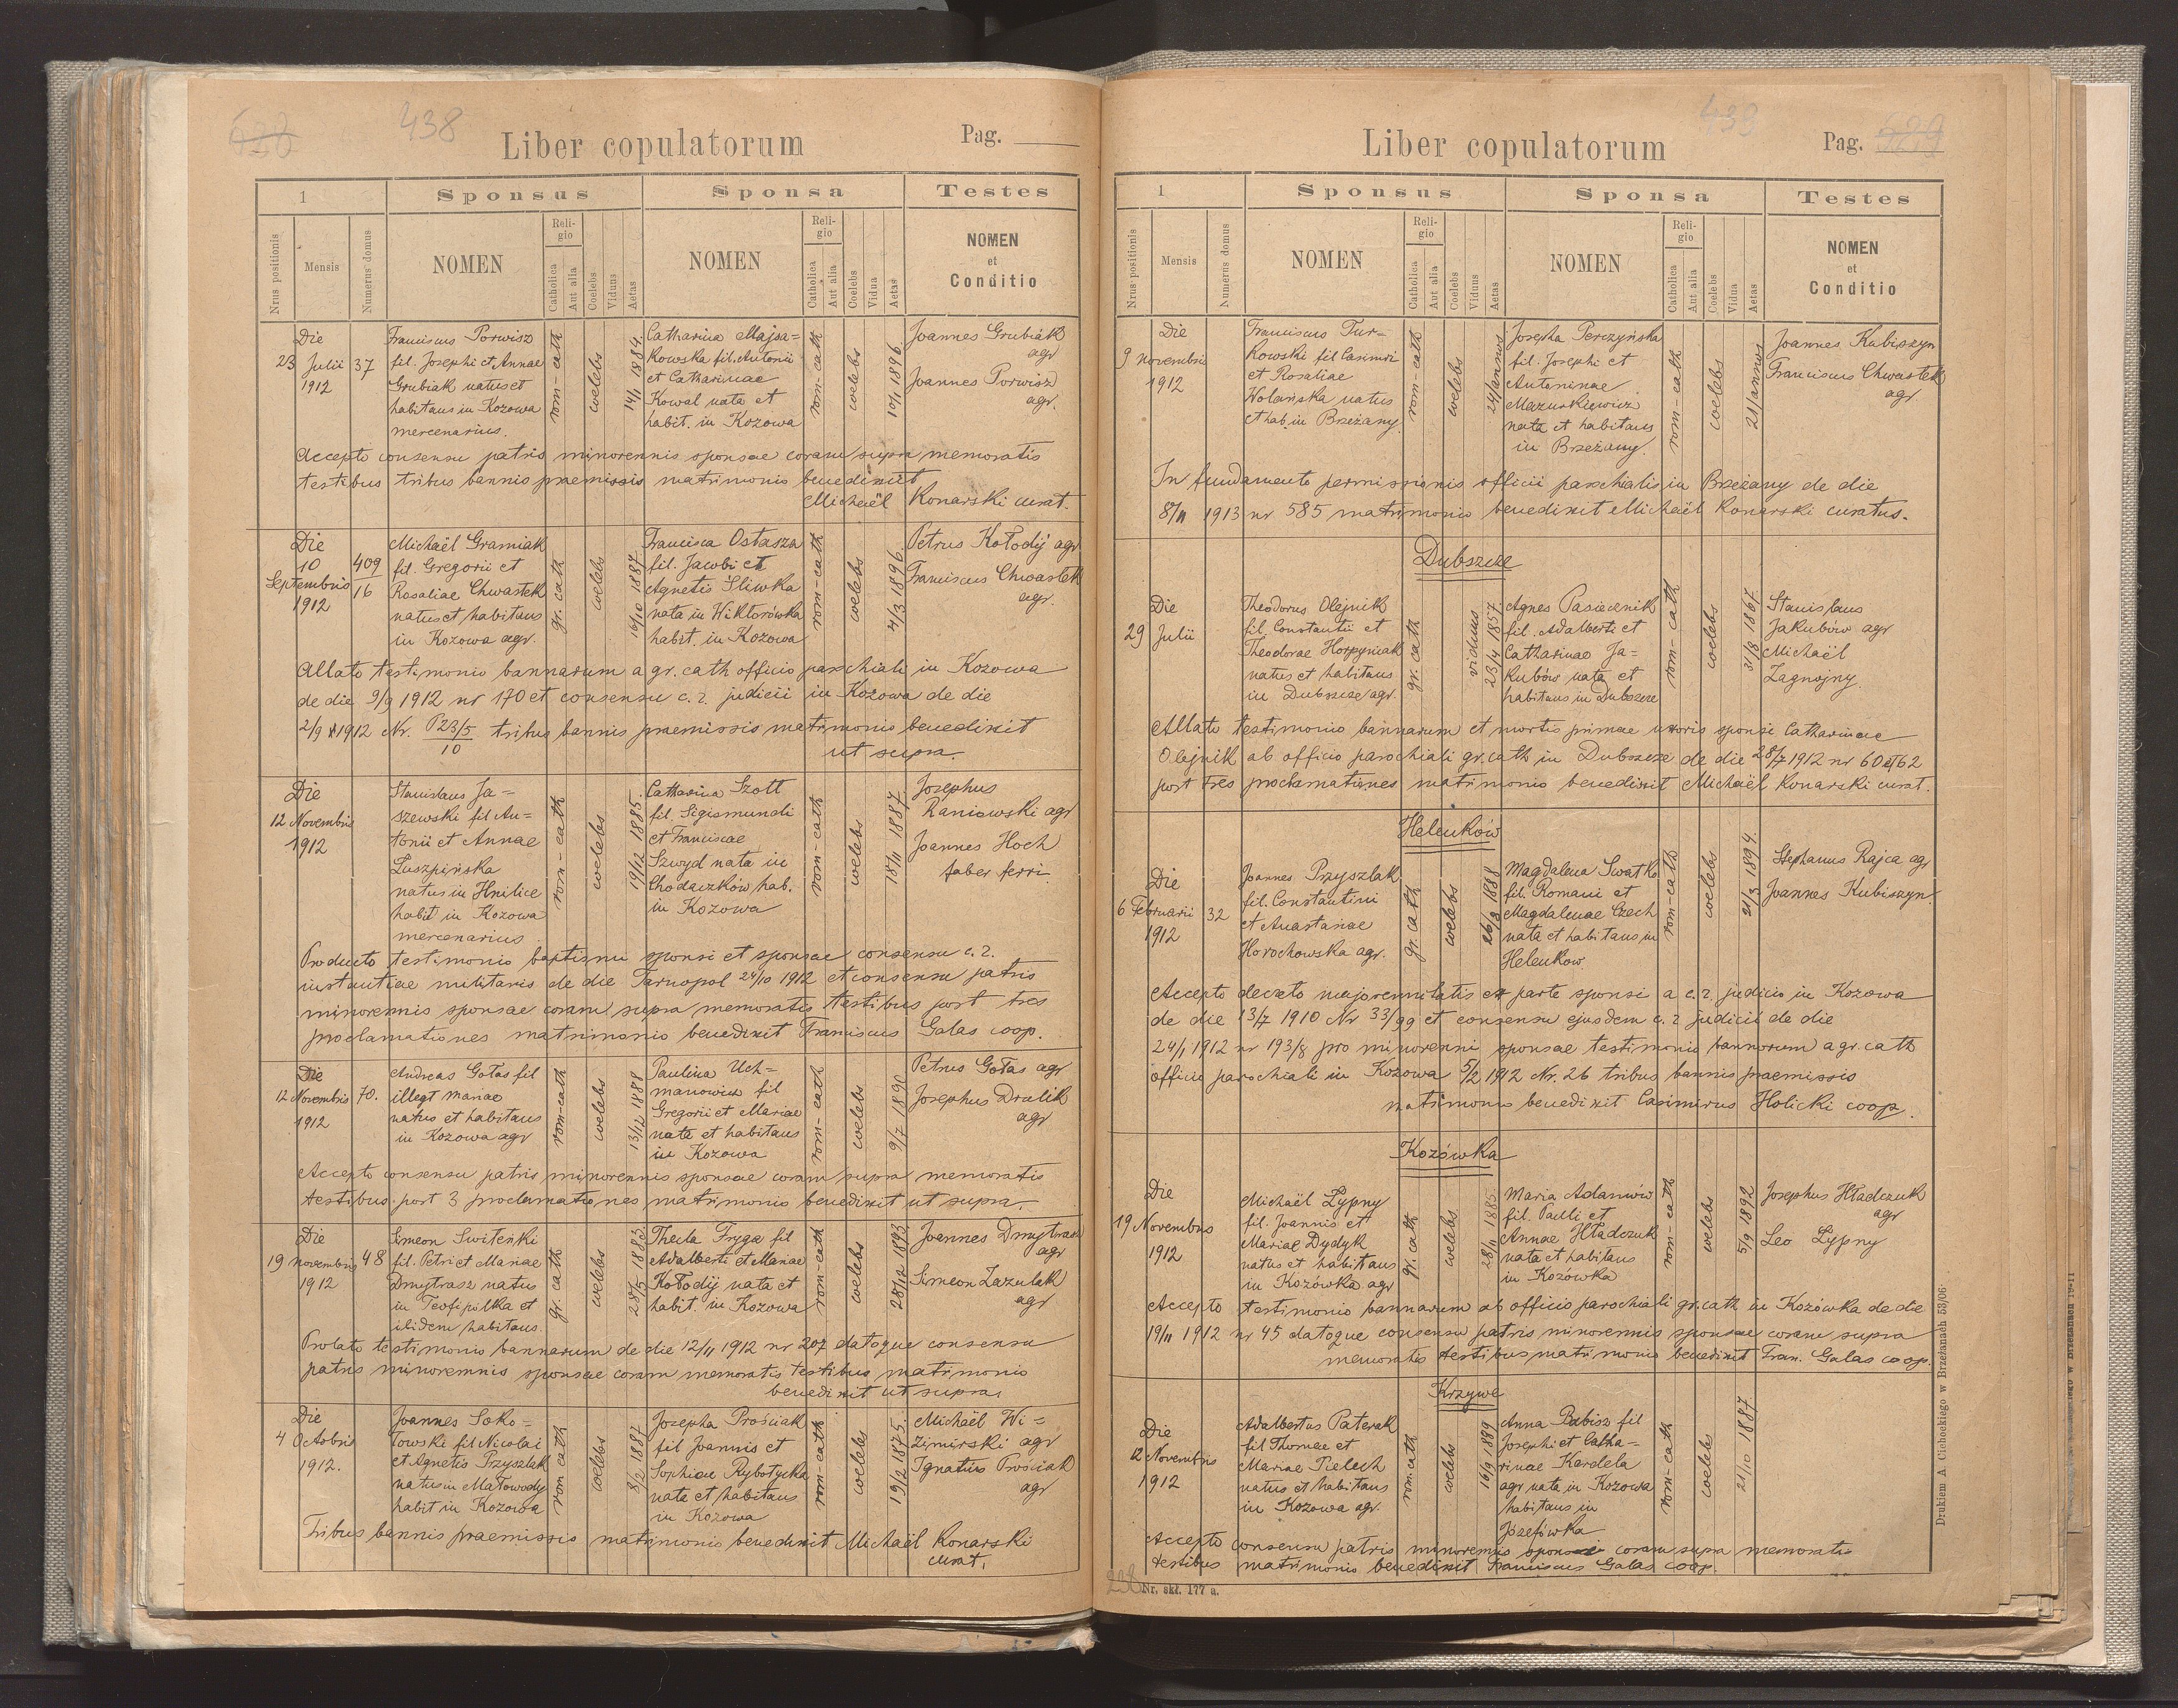 438
Liber copulatorum
Pag.
1
Sponsus
Sponsa
Testes
Nrus positionis
Mensis
Numerus domus
NOMEN
Religio
Catholica
Aut alia
Coelebs
Viduus
Aetas
NOMEN
Religio
Catholica
Aut alia
Coelebs
Vidua
Aetas
NOMEN
et
Conditio
Die
23 Julii
1912
37
Franciscus Porwisz
fil. Josephi et Annae
Grubiak natus et
habitans in Kozowa
mercenarius.
rom-cath
coelebs
14/1 1884.
Catharina Majsa=
kowska fil. Antonii
et Catharinae
Kowal nata et
habit. in Kozowa
rom-cath
coelebs
10/1 1886.
Joannes Grubiak
agr
Joannes Porwisz
agr.
Accepto consensu patris minorennis sponsae coram supra memoratis
testibus tribus bannis praemissis matrimonio benedixit
Michaël Konarski curat.
Die
10
Septembris
1912
409
16
Michaël Gramiak
fil. Gregorii et
Rosaliae Chwastek
natus et habitans
in Kozowa agr.
gr. cath
coelebs
16/10 1887
Francisca Ostasza
fil. Jacobi et
Agnetis Śliwka
nata in Wiktorówka
habit. in Kozowa
rom-cath
coelebs
4/3 1896.
Petrus Kołodij agr
Franciscus Chwastek
agr.
Allato testimonio bannarum a gr. cath officio parochiali in Kozowa
de die 9/9 1912 nr 170 et consensu c. r. judicii in Kozowa de die
2/9 1912 Nr. P23/5
10
tribus bannis praemissis matrimonio benedixit
ut supra.
Die
12 Novembris
1912
Stanislaus Ja=
szewski fil An=
tonii et Annae
Łuszpińska
natus in Hnilice
habit in Kozowa
mercenarius
rom-cath
coelebs
19/12 1885.
Catharina Szott
fil. Sigismundi
et Franciscae
Szwyd nata in
Chodaczków hab.
in Kozowa
rom-cath
coelebs
18/11 1887
Josephus
Raniowski agr
Joannes Hoch
faber ferri
Producto testimonio baptismi sponsi et sponsae consensu c. r.
instantiae militaris de die Tarnopol 24/10 1912 et consensu patris
minorennis sponsae coram supra memoratis testibus post tres
proclamationes matrimonio benedixit Franciscus Galas coop.
Die
12 Novembris
1912
70.
Andreas Gołas fil
illegt Mariae
natus et habitans
in Kozowa agr
rom-cath
coelebs
13/12 1888
Paulina Uch=
manowicz fil
Gregorii et Mariae
nata et habitans
in Kozowa
rom-cath
coelebs
9/7 1890
Petrus Gołas agr
Josephus Dralik
agr
Accepto consensu patris minorennis sponsae coram supra memoratis
testibus post 3 proclamationes matrimonio benedixit ut supra.
Die
19 novembris
1912
48
Simeon Switeński
fil. Petri et Mariae
Dmytrasz natus
in Teofipilka et
ibidem habitans.
gr. cath
coelebs
28/5 1883
Thecla Fryga fil
Adalberti et Mariae
Kołodij nata et
habit. in Kozowa
rom-cath
coelebs
28/12 1893
Joannes Dmytrasz
agr
Simeon Zazulak
agr
Prolato testimonio bannarum de die 12/11 1912 nr 207 datoque consensu
patris minorennis sponsae coram memoratis testibus matrimonio
benedixit ut supra.
Die
4 Octobris
1912.
Joannes Soko=
łowski fil Nicolai
et Agnetis Przyszlak
natus in Małowody
habit in Kozowa
rom cath
coelebs
8/2 1887
Josepha Prościak
fil Joannis et
Sophiae Rybotycka
nata et habitans
in Kozowa
rom-cath
coelebs
19/2 1875.
Michaël Wi=
zimirski agr
Ignatius Prościak
agr
Tribus bannis praemissis matrimonio benedixit Michaël Konarski
curat.
439
Liber copulatorum
Pag.
1
Sponsus
Sponsa
Testes
Nrus positionis
Mensis
Numerus domus
NOMEN
Religio
Catholica
Aut alia
Coelebs
Viduus
Aetas
NOMEN
Religio
Catholica
Aut alia
Coelebs
Vidua
Aetas
NOMEN
et
Conditio
Die
9 novembris
1912
Franciscus Tur=
kowski fil Casimiri
et Rosaliae
Wolańska natus
et hab. in Brzeżany.
rom-cath
coelebs
24/annus
Josepha Perczyńska
fil. Josephi et
Antoninae
Mazurkiewicz
nata et habitans
in Brzeżany.
rom-cath
coelebs
21/annus
Joannes Kubiszyn
Franciscus Chwastek
agr
In fundamento permissionis officii parochialis in Brzeżany de die
8/11 1913 nr 585 matrimonio benedixit Michaël Konarski curatus.
Dubszcze
Die
29 Julii
Theodorus Olejnik
fil. Constantii et
Theodorae Horpyniak
natus et habitans
in Dubszcze agr.
gr. cath
viduus
23/4 1857
Agnes Pasiecznik
fil. Adalberti et
Catharinae Ja=
kubów nata et
habitans in Dubszcze
rom-cath
coelebs
31/8 1867.
Stanislaus
Jakubów agr
Michaël
Zagnojny.
Allato testimonio bannarum et mortis primae uxoris sponsi Catharinae
Olejnik ab officio parochiali gr. cath in Dubszcze de die 28/7 1912 nr 60 et 62
post tres proclamationes matrimonio benedixit Michaël Konarski curat.
Helenków
Die
6 Februarii
1912
32
Joannes Przyszlak
fil. Constantini
et Anastasiae
Horochowska agr.
gr. cath
coelebs
26/3 1888
Magdalena Swatko
fil. Romani et
Magdalenae Czech
nata et habitans in
Helenków.
rom-cath
coelebs
21/3 1894.
Stephanus Rajca agr
Joannes Kubiszyn.
Accepto decreto majorennitatis ex parte sponsi a c. r. judicio in Kozowa
de die 13/7 1910 Nr 33/99 et consensu ejusdem c. r judicii de die
24/1 1912 nr 193/8 pro minorenni sponsae testimonio bannorum a gr. cath
officio parochiali in Kozowa 5/2 1912 Nr. 26 tribus bannis praemissis
matrimonio benedixit Casimirus Holicki coop.
Kozówka
Die
19 Novembris
1912
Michaël Łypny
fil. Joannis et
Mariae Dydyk
natus et habitans
in Kozówka agr
gr. cath
coelebs
28/11 1885.
Maria Adamów
fil. Pauli et
Annae Hładczuk
nata et habitans
in Kozówka
rom-cath
coelebs
5/9 1892
Josephus Hładczuk
agr
Leo Łypny
Accepto testimonio bannarum ab officio parochiali gr. cath in Kozówka de die
19/11 1912 nr 45 datoque consensu patris minorennis sponsae coram supra
memoratis testibus matrimonio benedixit Fran. Galas coop.
Krzywe
Die
12 Novembris
1912
Adalbertus Paterak
fil Thomae et
Mariae Pielech
natus et habitans
in Kozowa agr.
rom. cath
coelebs
16/9 1889
Anna Babisz fil
Josephi et Catha=
rinae Kardela
agr nata in Kozowa
habitans in
Józefówka
rom-cath
coelebs
21/10 1887
Accepto consensu patris minorennis sponsae coram supra memoratis
testibus matrimonio benedixit Franciscus Galas coop.
Nr. skł. 177 a.
Drukiem A Cichockiego w Brzeżanach 53/06